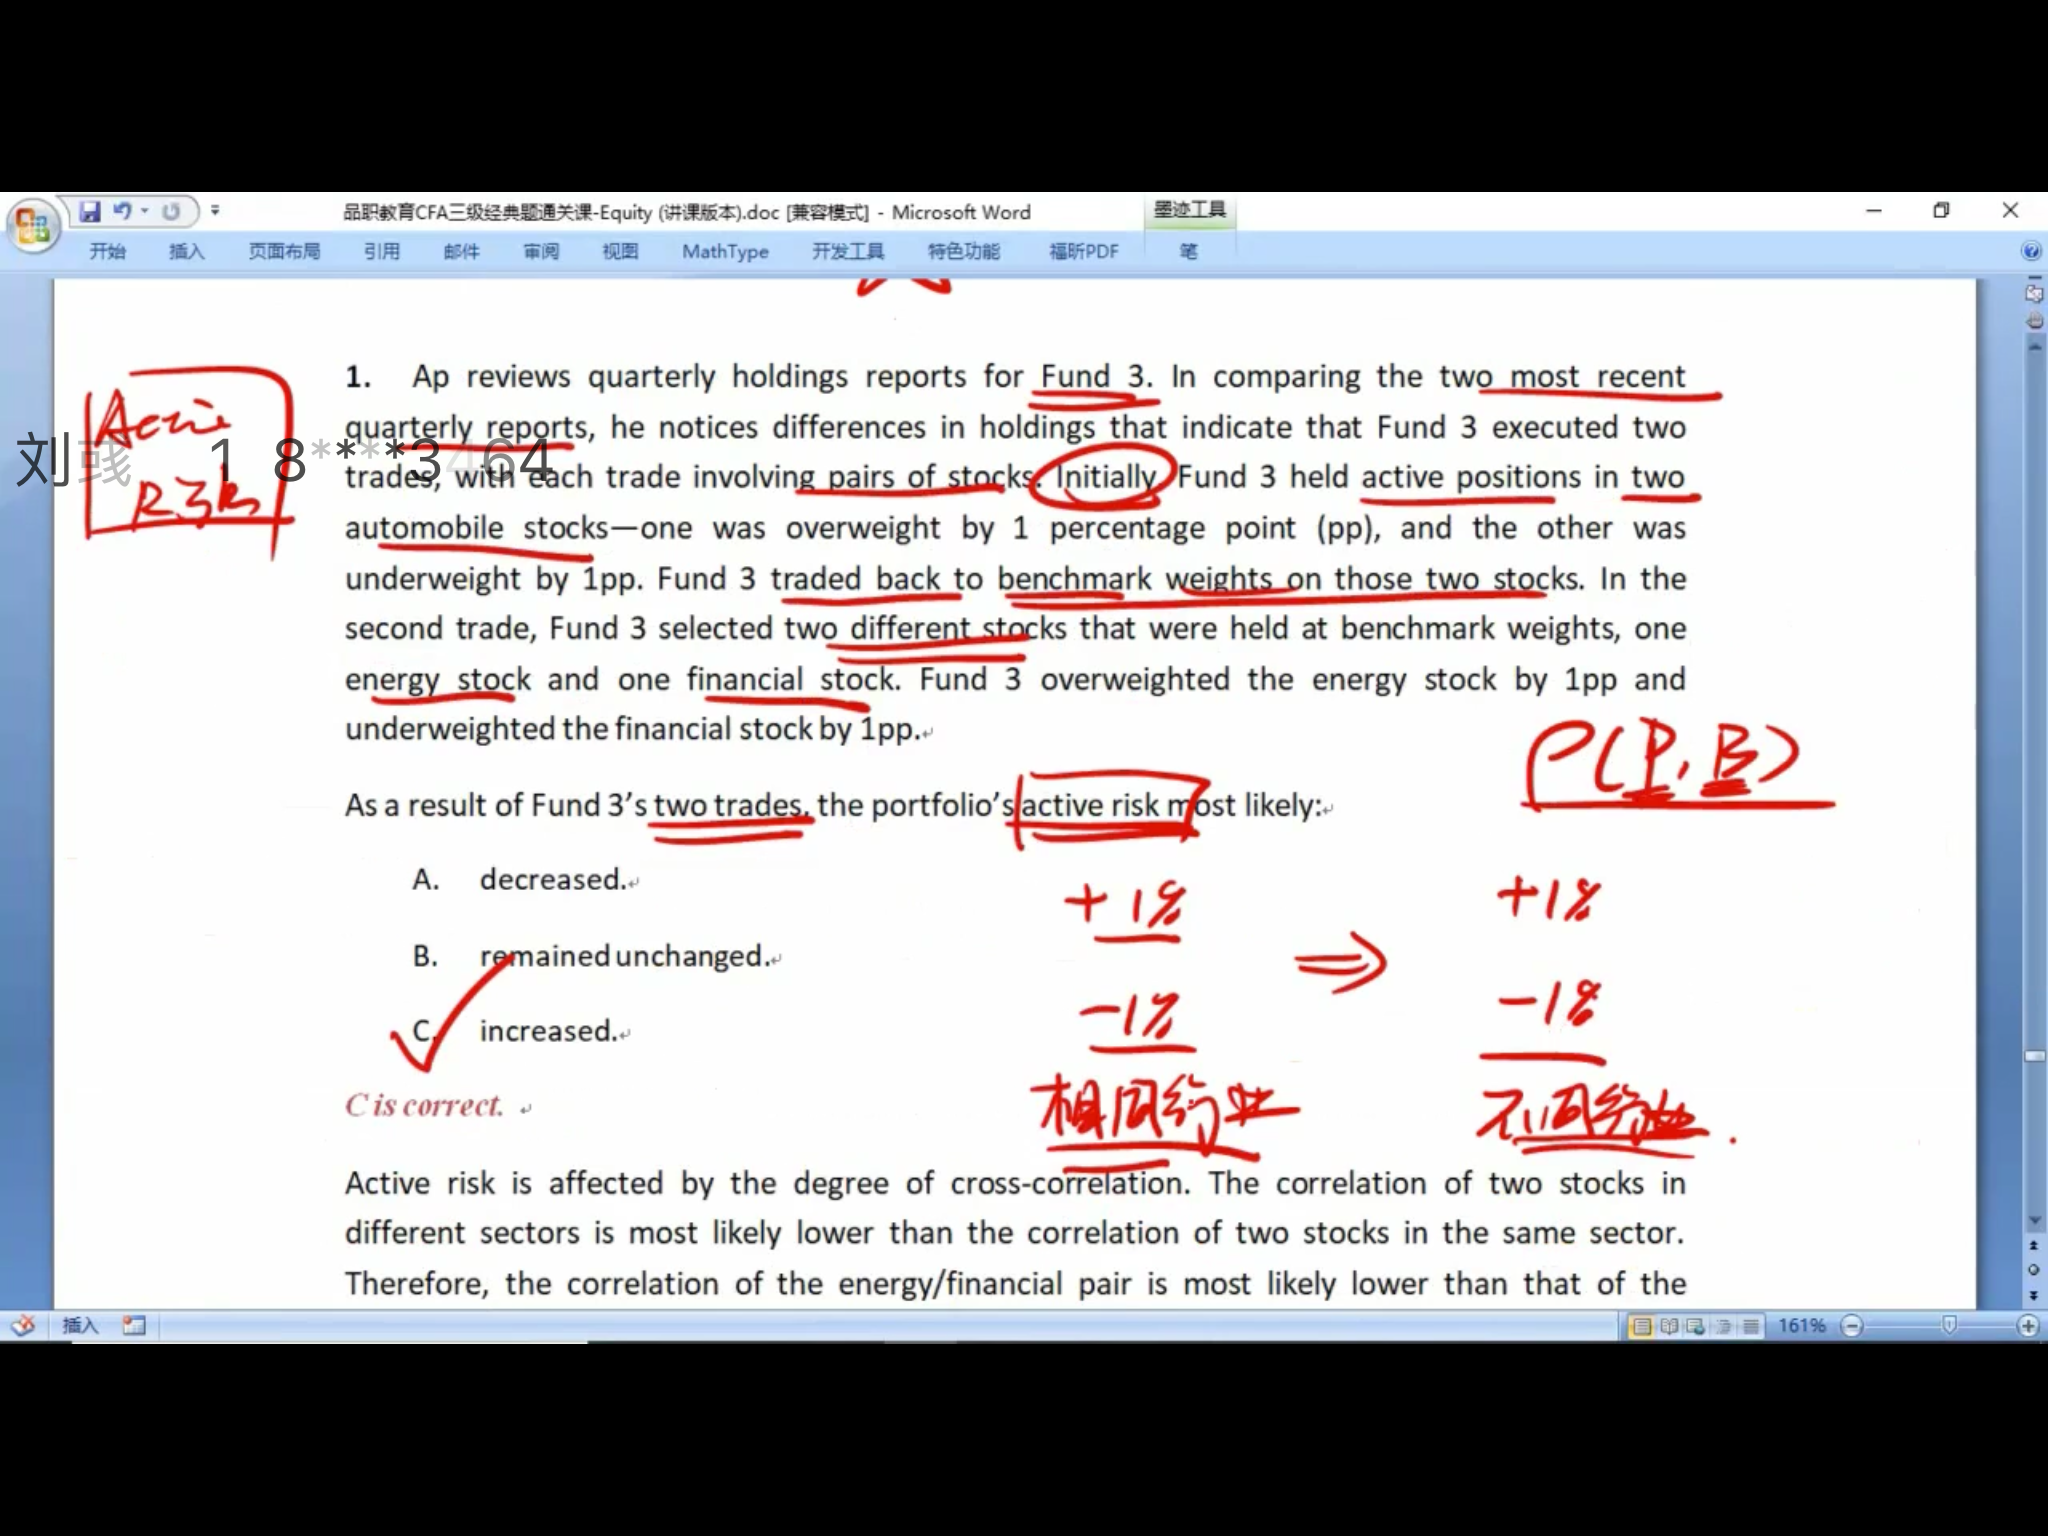 品职教育CFA三级经典题通关课-Equity (讲课版本).doc [兼容模式] - Microsoft Word
墨迹工具
开始 插入 页面布局 引用 邮件 审阅 视图 MathType 开发工具 特色功能 福昕PDF 笔
1. Ap reviews quarterly holdings reports for Fund 3. In comparing the two most recent
quarterly reports, he notices differences in holdings that indicate that Fund 3 executed two
trades, with each trade involving pairs of stocks. Initially Fund 3 held active positions in two
automobile stocks—one was overweight by 1 percentage point (pp), and the other was
underweight by 1pp. Fund 3 traded back to benchmark weights on those two stocks. In the
second trade, Fund 3 selected two different stocks that were held at benchmark weights, one
energy stock and one financial stock. Fund 3 overweighted the energy stock by 1pp and
underweighted the financial stock by 1pp.
Active
Risk
刘彧 1 8****3464
ρ(P, B)
As a result of Fund 3’s two trades, the portfolio’s active risk most likely:
A. decreased.
B. remained unchanged.
C. increased.
+1%
-1%
相同行业
⇒
+1%
-1%
不同行业.
C is correct.
Active risk is affected by the degree of cross-correlation. The correlation of two stocks in
different sectors is most likely lower than the correlation of two stocks in the same sector.
Therefore, the correlation of the energy/financial pair is most likely lower than that of the
插入
161%